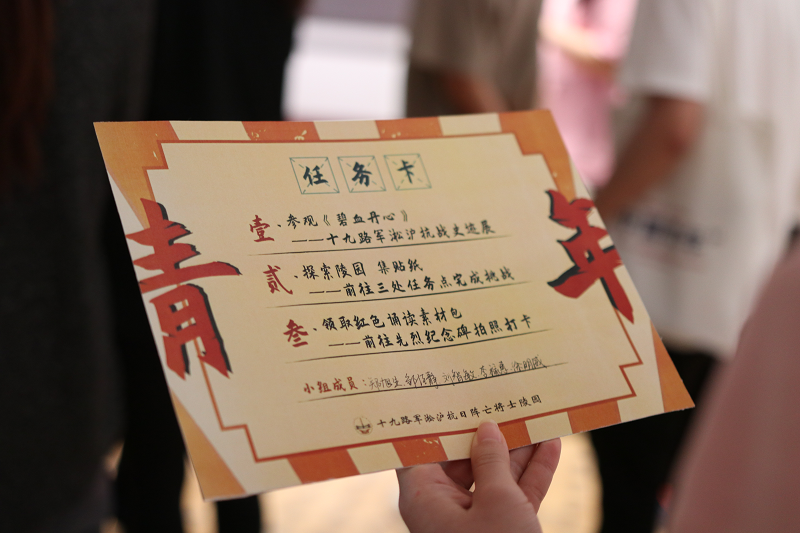 任务卡
青年
壹、参观《碧血丹心》
——十九路军淞沪抗战史迹展
贰、探索陵园 集贴纸
——前往三处任务点完成挑战
叁、领取红色诵读素材包
——前往先烈纪念碑拍照打卡
小组成员：
十九路军淞沪抗日阵亡将士陵园